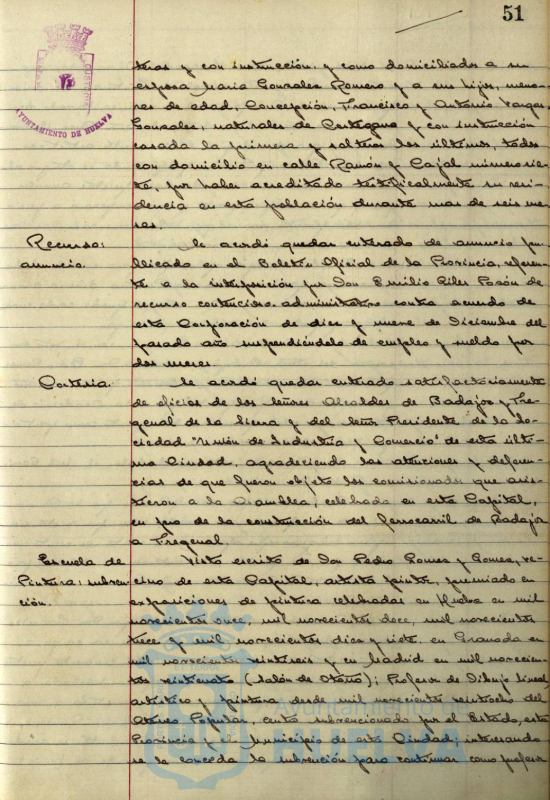 51
AYUNTAMIENTO DE HUELVA
teras y con instrucción, y como domiciliados a su
esposa María Gonzales Romero y a sus hijos, meno-
res de edad, Concepción, Francisco y Antonio Vargas
Gonzales, naturales de Cortegana y con instrucción
casada la primera y solteros los últimos, todos
con domicilio en calle Ramón y Cajal número sie-
te, por haber acreditado testificalmente su resi-
dencia en esta población durante mas de seis me-
ses.
Recurso:
anuncio.
Se acordó quedar enterado de anuncio pu-
blicado en el Boletín Oficial de la Provincia, referen-
te a la interposición por Don Emilio Giles Pasón de
recurso contencioso-administrativo contra acuerdo de
esta Corporación de diez y nueve de Diciembre del
pasado año suspendiéndole de empleo y sueldo por
dos meses.
Cortesia.
Se acordó quedar enterado satisfactoriamente
de oficios de los señores Alcaldes de Badajoz y Fre-
genal de la Sierra y del señor Presidente de la So-
ciedad "Unión de Industria y Comercio" de esta últi-
ma Ciudad, agradeciendo las atenciones y deferen-
cias de que fueron objeto los comisionados que asis-
tieron a la Asamblea, celebrada en esta Capital,
en pro de la construcción del ferrocarril de Badajoz
a Fregenal.
Escuela de
Pintura: subven-
ción.
Visto escrito de Don Pedro Gomez y Gomez, ve-
cino de esta Capital, artista pintor, premiado en
exposiciones de pintura celebradas en Huelva en mil
novecientos once, mil novecientos doce, mil novecientos
trece y mil novecientos diez y siete, en Granada en
mil novecientos veintiseis y en Madrid en mil novecien-
tos veinticuatro (Salón de Otoño); Profesor de Dibujo lineal
artístico y pintura desde mil novecientos veintiocho del
Ateneo Popular, centro subvencionado por el Estado, esta
Provincia y el Municipio de esta Ciudad; interesando
se le conceda la subvención para continuar como profesor
Ayuntamiento de
HUELVA